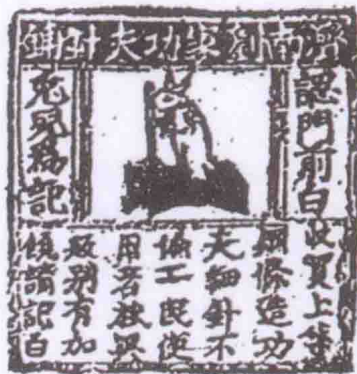 濟南劉家功夫針鋪
認門前白
兔兒爲記
收買上等
鋼條造功
夫細針不
偷工民便
用若被興
販別有加
饒請記白